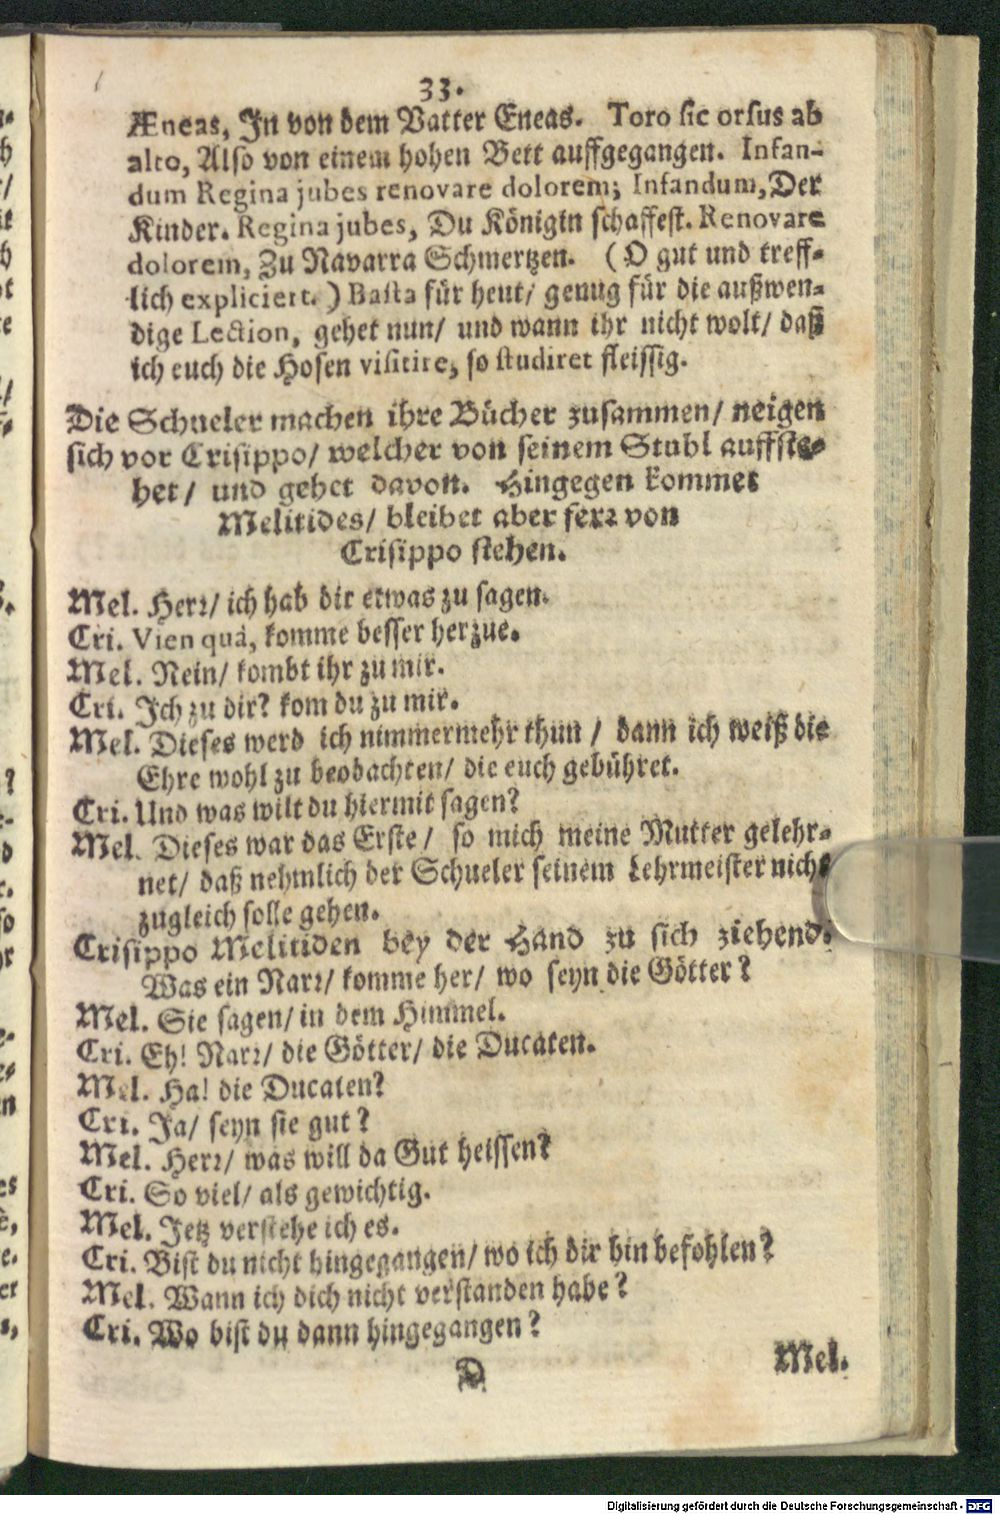 33.
Æneas, In von dem Vatter Eneas. Toro sic orsus ab
alto, Also von einem hohen Bett auffgegangen. Infan-
dum Regina jubes renovare dolorem; Infandum, Der
Kinder. Regina jubes, Du Königin schaffest. Renovare
dolorem, Zu Navarra Schmertzen. (O gut und treff-
lich expliciert.) Basta für heut/ genug für die außwen-
dige Lection, gehet nun/ und wann ihr nicht wolt/ daß
ich euch die Hosen visitire, so studiret fleissig.
Die Schueler machen ihre Bücher zusammen/ neigen
sich vor Crisippo/ welcher von seinem Stuhl auffste-
het/ und gehet davon. Hingegen kommet
Melitides/ bleibet aber ferꝛ von
Crisippo stehen.
Mel. Herꝛ/ ich hab dir etwas zu sagen.
Cri. Vien quà, komme besser herzue.
Mel. Nein/ kombt ihr zu mir.
Cri. Ich zu dir? kom du zu mir.
Mel. Dieses werd ich nimmermehr thun/ dann ich weiß die
Ehre wohl zu beobachten/ die euch gebühret.
Cri. Und was wilt du hiermit sagen?
Mel. Dieses war das Erste/ so mich meine Mutter gelehr-
net/ daß nehmlich der Schueler seinem Lehrmeister nicht
zugleich solle gehen.
Crisippo Melitiden bey der Hand zu sich ziehend.
Was ein Narꝛ/ komme her/ wo seyn die Götter?
Mel. Sie sagen/ in dem Himmel.
Cri. Eh! Narꝛ/ die Götter/ die Ducaten.
Mel. Ha! die Ducaten?
Cri. Ja/ seyn sie gut?
Mel. Herꝛ/ was will da Gut heissen?
Cri. So viel/ als gewichtig.
Mel. Jetz verstehe ich es.
Cri. Bist du nicht hingegangen/ wo ich dir hin befohlen?
Mel. Wann ich dich nicht verstanden habe?
Cri. Wo bist du dann hingegangen?
D
Mel.
Digitalisierung gefördert durch die Deutsche Forschungsgemeinschaft - DFG